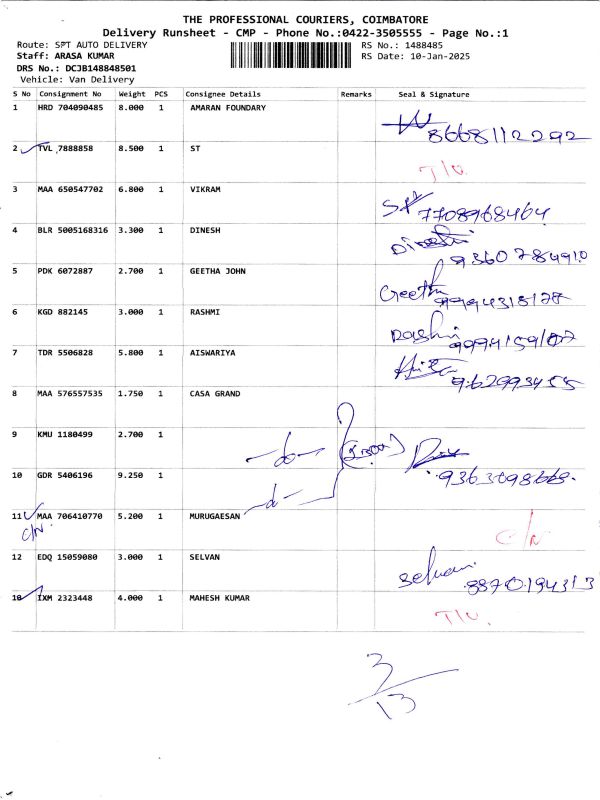 THE PROFESSIONAL COURIERS, COIMBATORE
Delivery Runsheet - CMP - Phone No.:0422-3505555 - Page No.:1
Route: SPT AUTO DELIVERY RS No.: 1488485
Staff: ARASA KUMAR RS Date: 10-Jan-2025
DRS No.: DCJB148848501
Vehicle: Van Delivery
S No Consignment No Weight PCS Consignee Details Remarks Seal & Signature
1 HRD 704090485 8.000 1 AMARAN FOUNDARY
8668112292
2 TVL 7888858 8.500 1 ST
T/U.
3 MAA 650547702 6.800 1 VIKRAM
7708968464
4 BLR 5005168316 3.300 1 DINESH
Dinesh
9360784910
5 PDK 6072887 2.700 1 GEETHA JOHN
Geetha
6 KGD 882145 3.000 1 RASHMI
Rashmi
7 TDR 5506828 5.800 1 AISWARIYA
8 MAA 576557535 1.750 1 CASA GRAND
9 KMU 1180499 2.700 1
-do-
10 GDR 5406196 9.250 1
-d-
11 MAA 706410770 5.200 1 MURUGAESAN
C/N C/N
12 EDQ 15059080 3.000 1 SELVAN
Selvan
8870194313
13 IXM 2323448 4.000 1 MAHESH KUMAR
T/U.
3/13